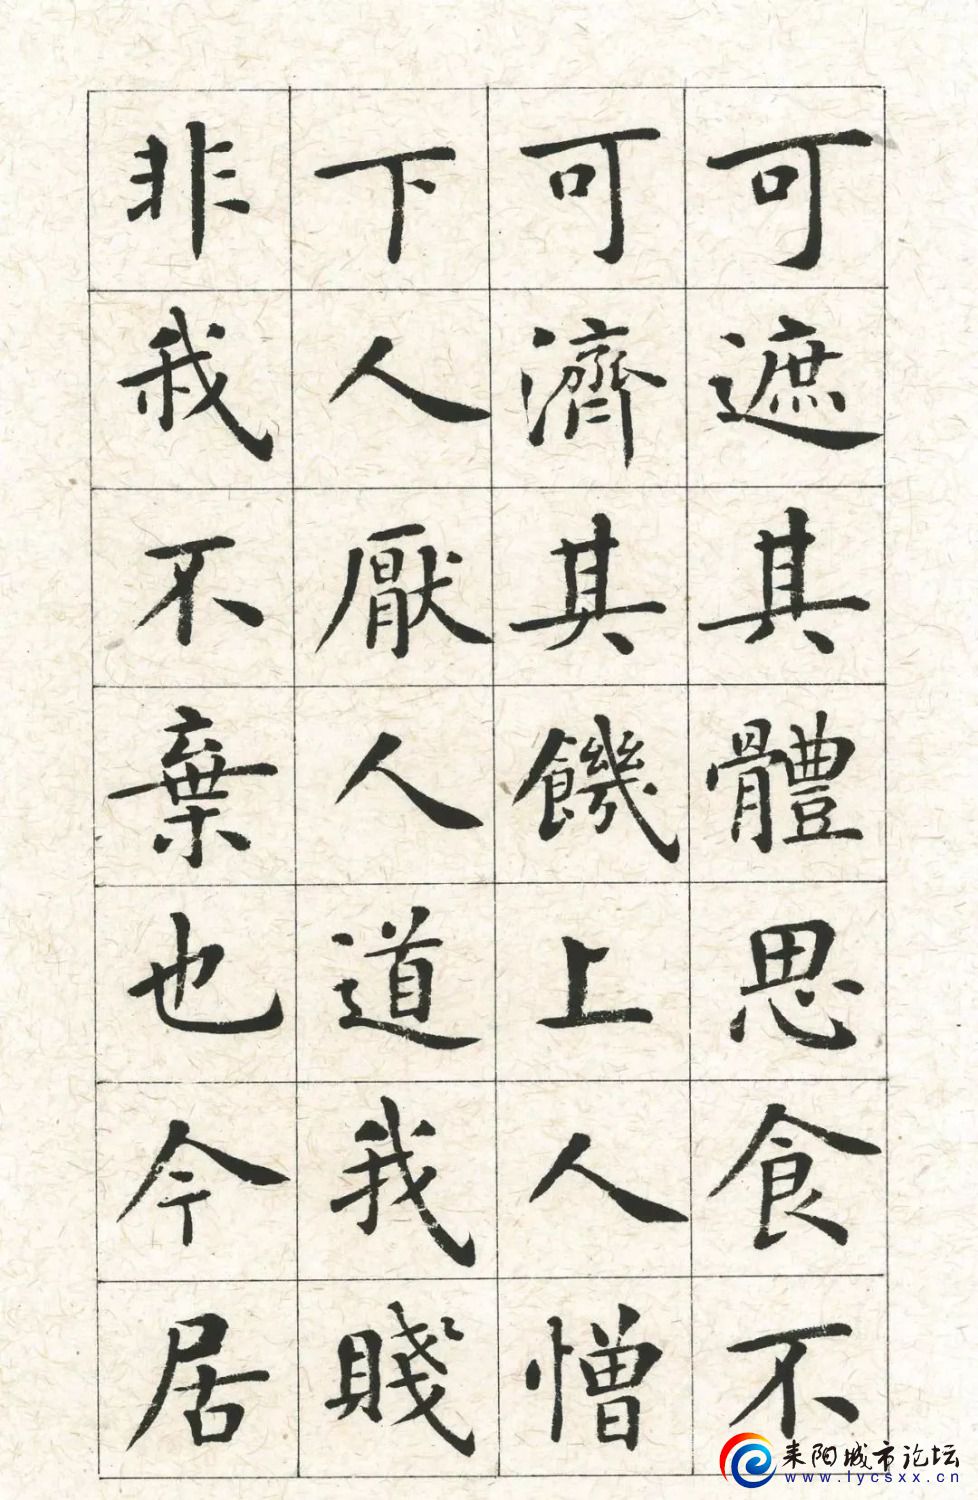 可遮其體思食不
可濟其饑上人憎
下人厭人道我賤
非我不棄也今居
耒阳城市论坛
www.lycsxx.cn